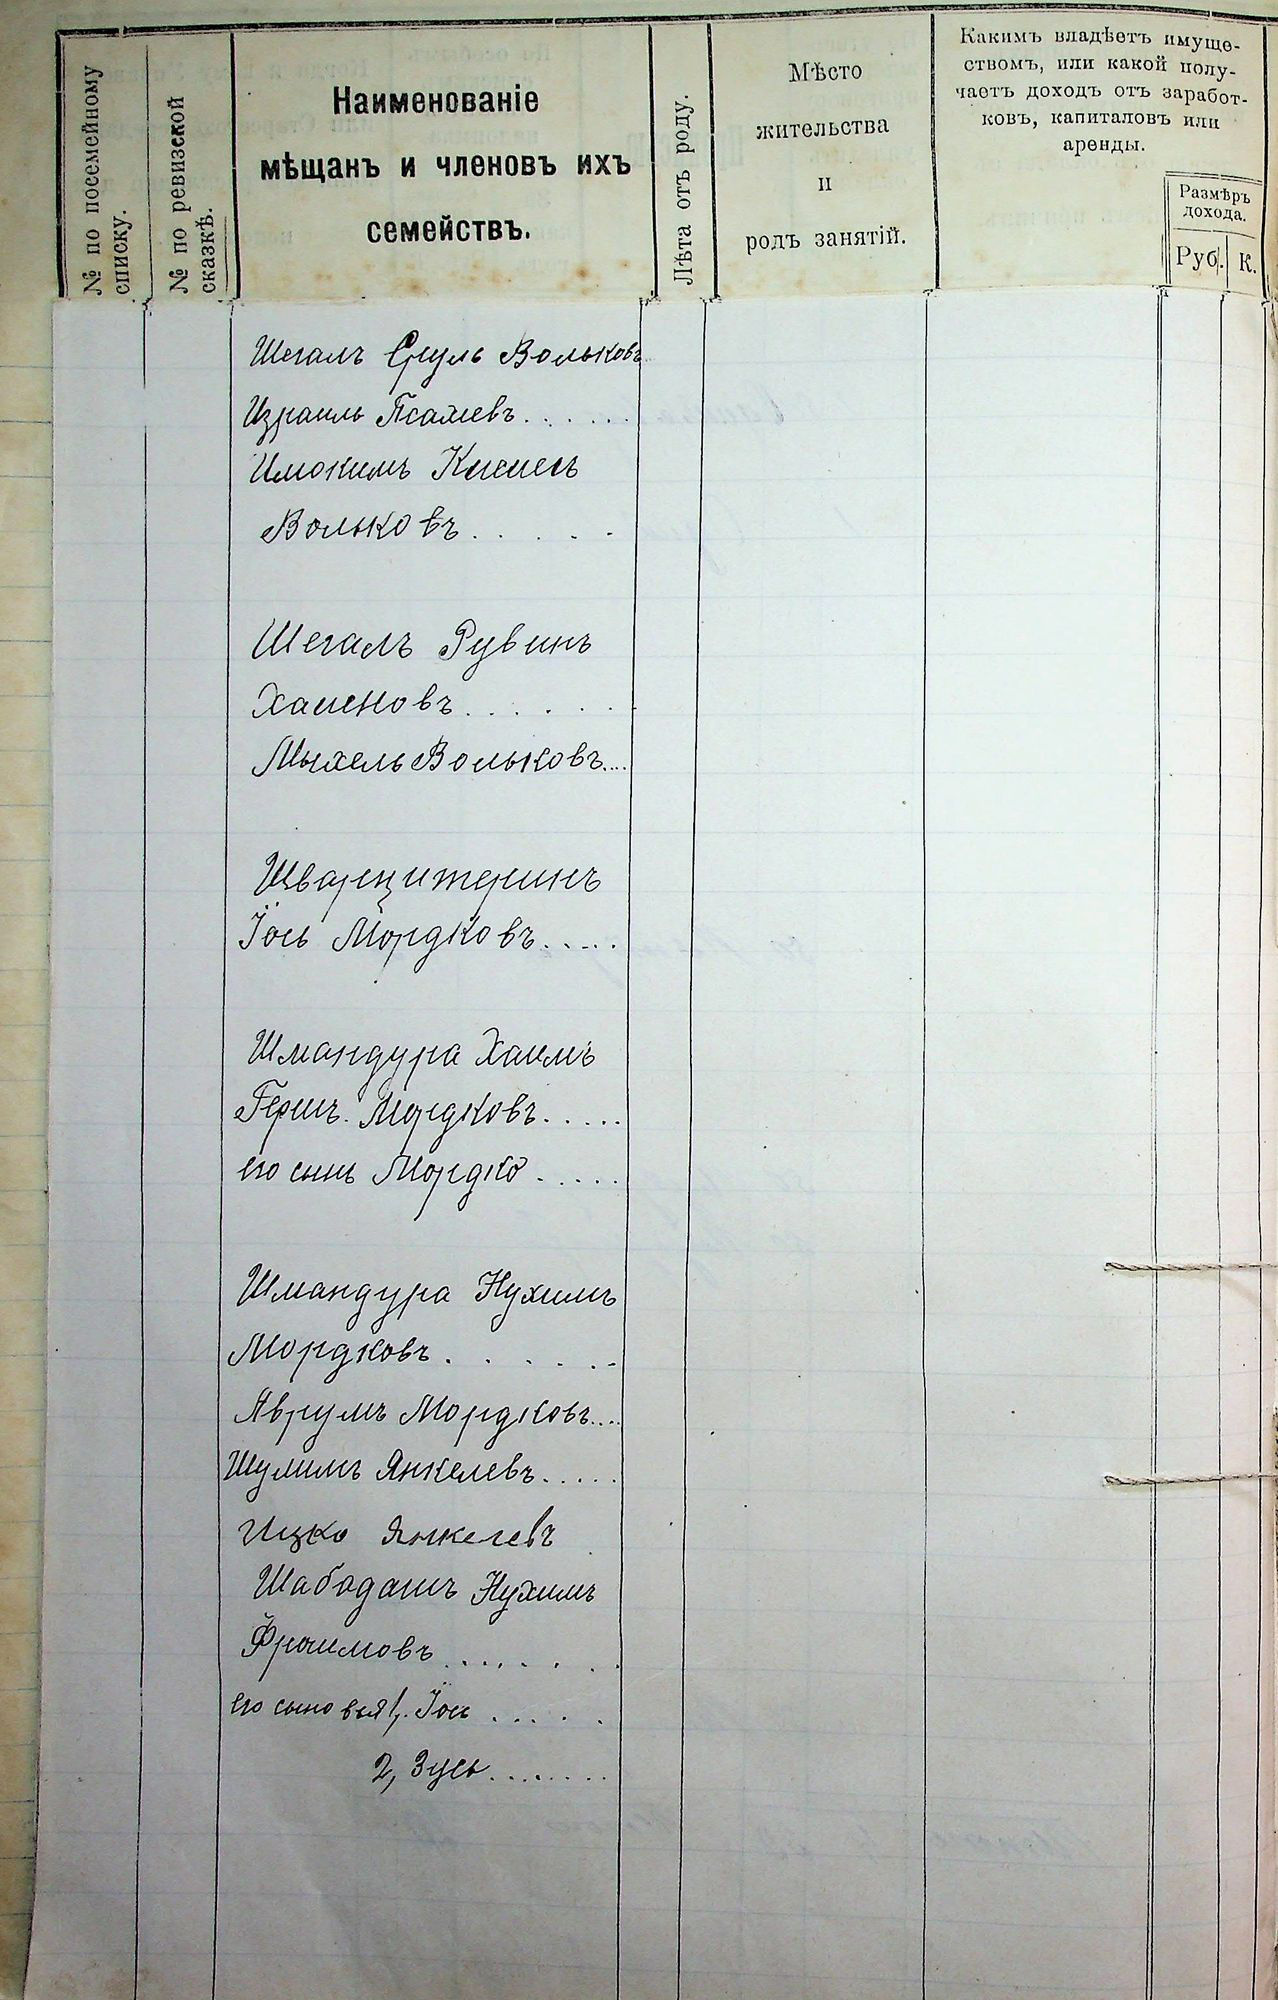 № по посемейному
списку.
№ по ревизской
сказкѣ.
Наименованіе
мѣщанъ и членовъ ихъ
семействъ.
Лѣта отъ роду.
Мѣсто
жительства
и
родъ занятій.
Какимъ владѣетъ имуще-
ствомъ, или какой полу-
чаетъ доходъ отъ заработ-
ковъ, капиталовъ или
аренды.
Размѣръ
дохода.
Руб. К.
Шегалъ Сруль Вольковъ
Израиль
Вольковъ . . . . .
Шегалъ Рувинъ
Хаимовъ . . . . .
Мыхель Вольковъ....
Шварцитеринъ
Їось Мордковъ.....
Шмандура Хаимъ
Герш. Мордковъ.....
его сынъ Мордко .....
Шмандура Нухимъ
Мордковъ . . . . . .
Аврумъ Мордковъ....
Шулимъ Янкелевъ.....
Ицко Янкелевъ
Шабадашъ Нухимъ
Фроимовъ .......
его сыновья 1, Їось .....
2, Зусь.......